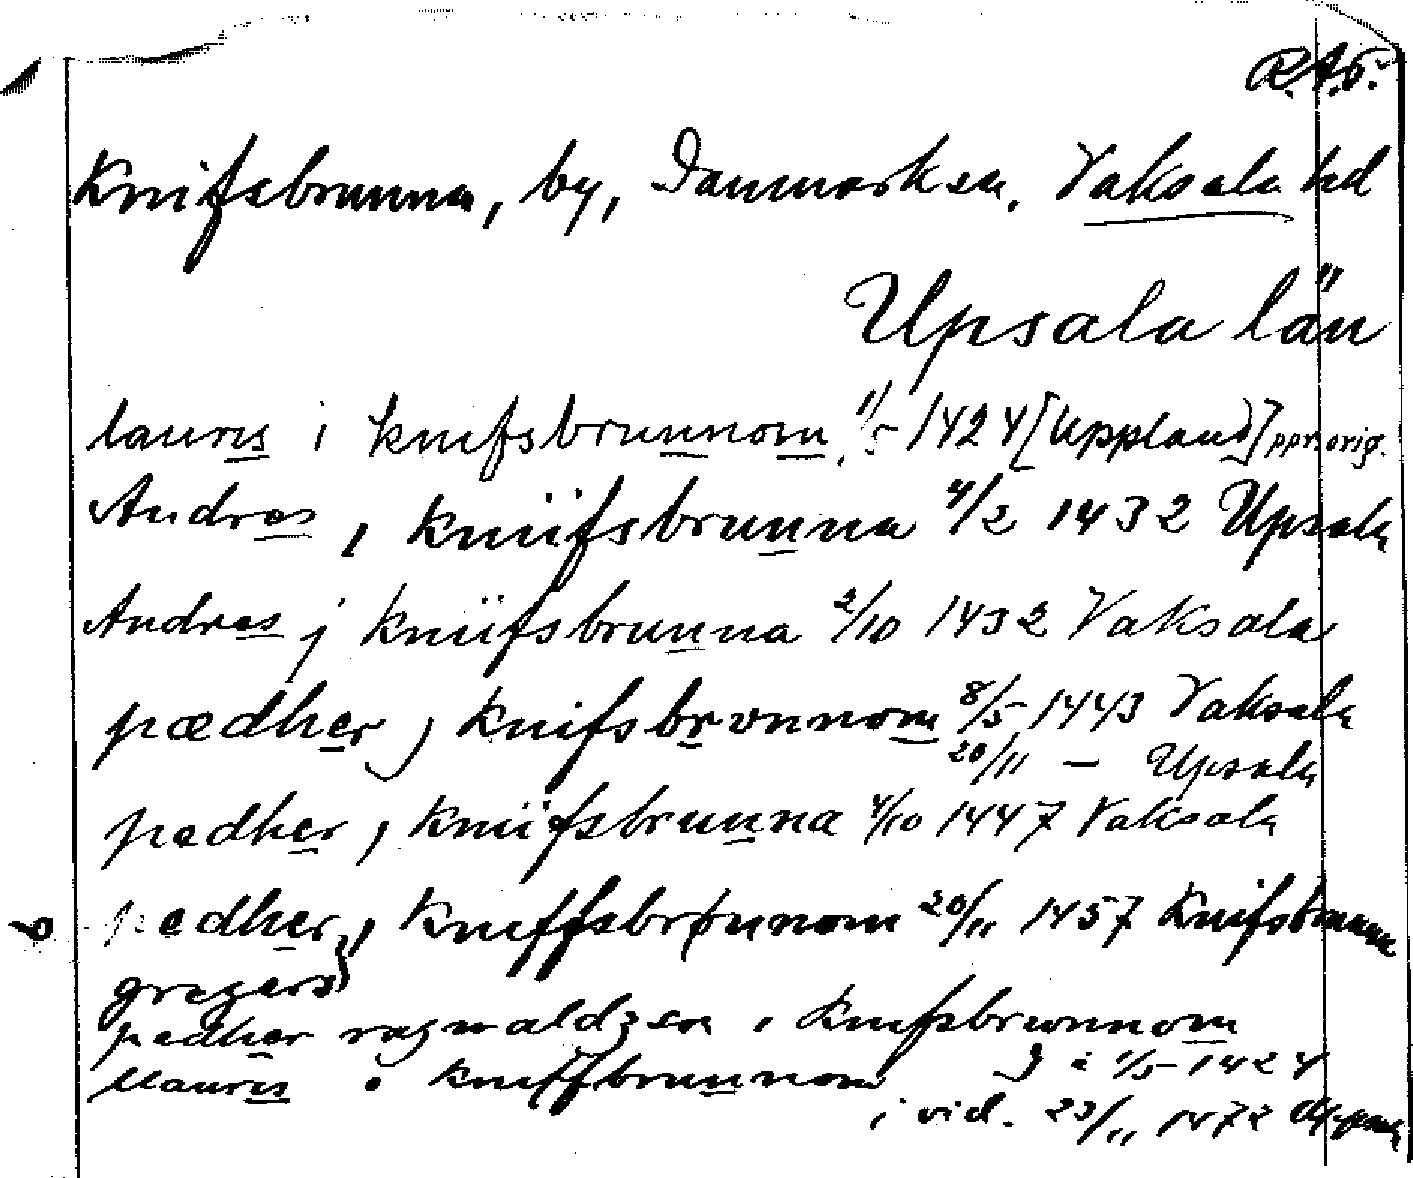 R.A.ö.
Knifsbrunna, by, Danmarks sn. Vaksala hd
Upsala län
lauris i knifsbrunnom 1/5 1424 [Uppland] ppr. orig.
Andres i kniifsbrunna 4/2 1432 Upsala
Andres j kniifsbrunna 2/10 1432 Vaksala
pædher j knifsbrvnnom 8/5 1443 Vaksala
20/11 — Upsala
pedher j kniifsbrunna 4/10 1447 Vaksala
pedher j kneffsbrønnom 20/11 1457 Knifsbrunna
gregers
pedher ragwaldzson i knifsbrwnnom
lauris i kniffbrunnom i 1/5 1424
i vid. 23/11 1472 Uppsala